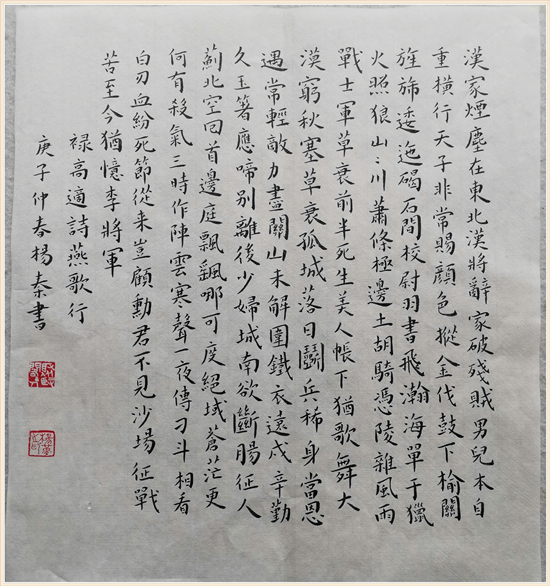 漢家煙塵在東北漢將辭家破殘賊男兒本自
重橫行天子非常賜顏色摐金伐鼓下榆關
旌旆逶迤碣石間校尉羽書飛瀚海單于獵
火照狼山〻川蕭條極邊土胡騎憑陵雜風雨
戰士軍草衰前半死生美人帳下猶歌舞大
漠窮秋塞草衰孤城落日鬭兵稀身當恩
遇常輕敵力盡關山未解圍鐵衣遠戍辛勤
久玉箸應啼別離後少婦城南欲斷腸征人
薊北空回首邊庭飄颻哪可度絕域蒼茫更
何有殺氣三時作陣雲寒聲一夜傳刁斗相看
白刃血紛死節從来豈顧勳君不見沙場征戰
苦至今猶憶李將軍
祿高適詩燕歌行
庚子仲春楊秦書